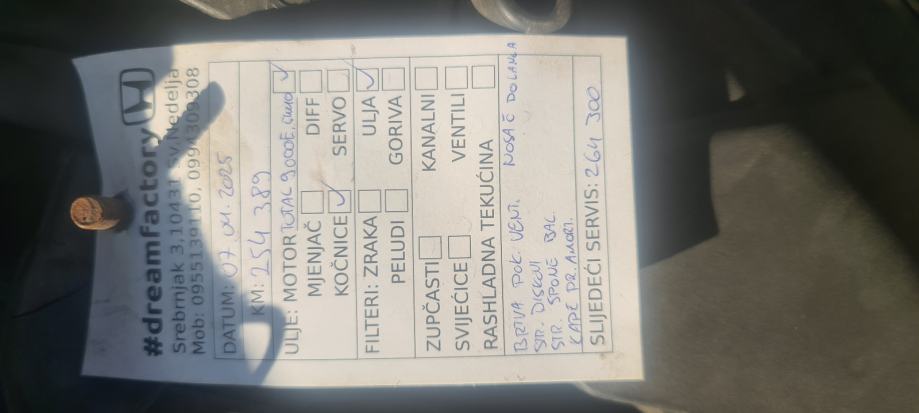 #dreamfactory
Srebrnjak 3,10431 Sv.Nedelja
Mob: 0955139110, 0994309308
DATUM: 07.01.2025
KM: 254 389
ULJE: MOTOR TOTAL 9000E.
MJENJAČ DIFF
KOČNICE SERVO
FILTERI: ZRAKA ULJA
PELUDI GORIVA
ZUPČASTI KANALNI
SVIJEĆICE VENTILI
RASHLADNA TEKUĆINA
BRTVA POK. VENT. NOSAČ
STR. DISKOVI
STR. SPONE BAL.
KAPE PR. AMORT.
SLIJEDEĆI SERVIS: 264 300